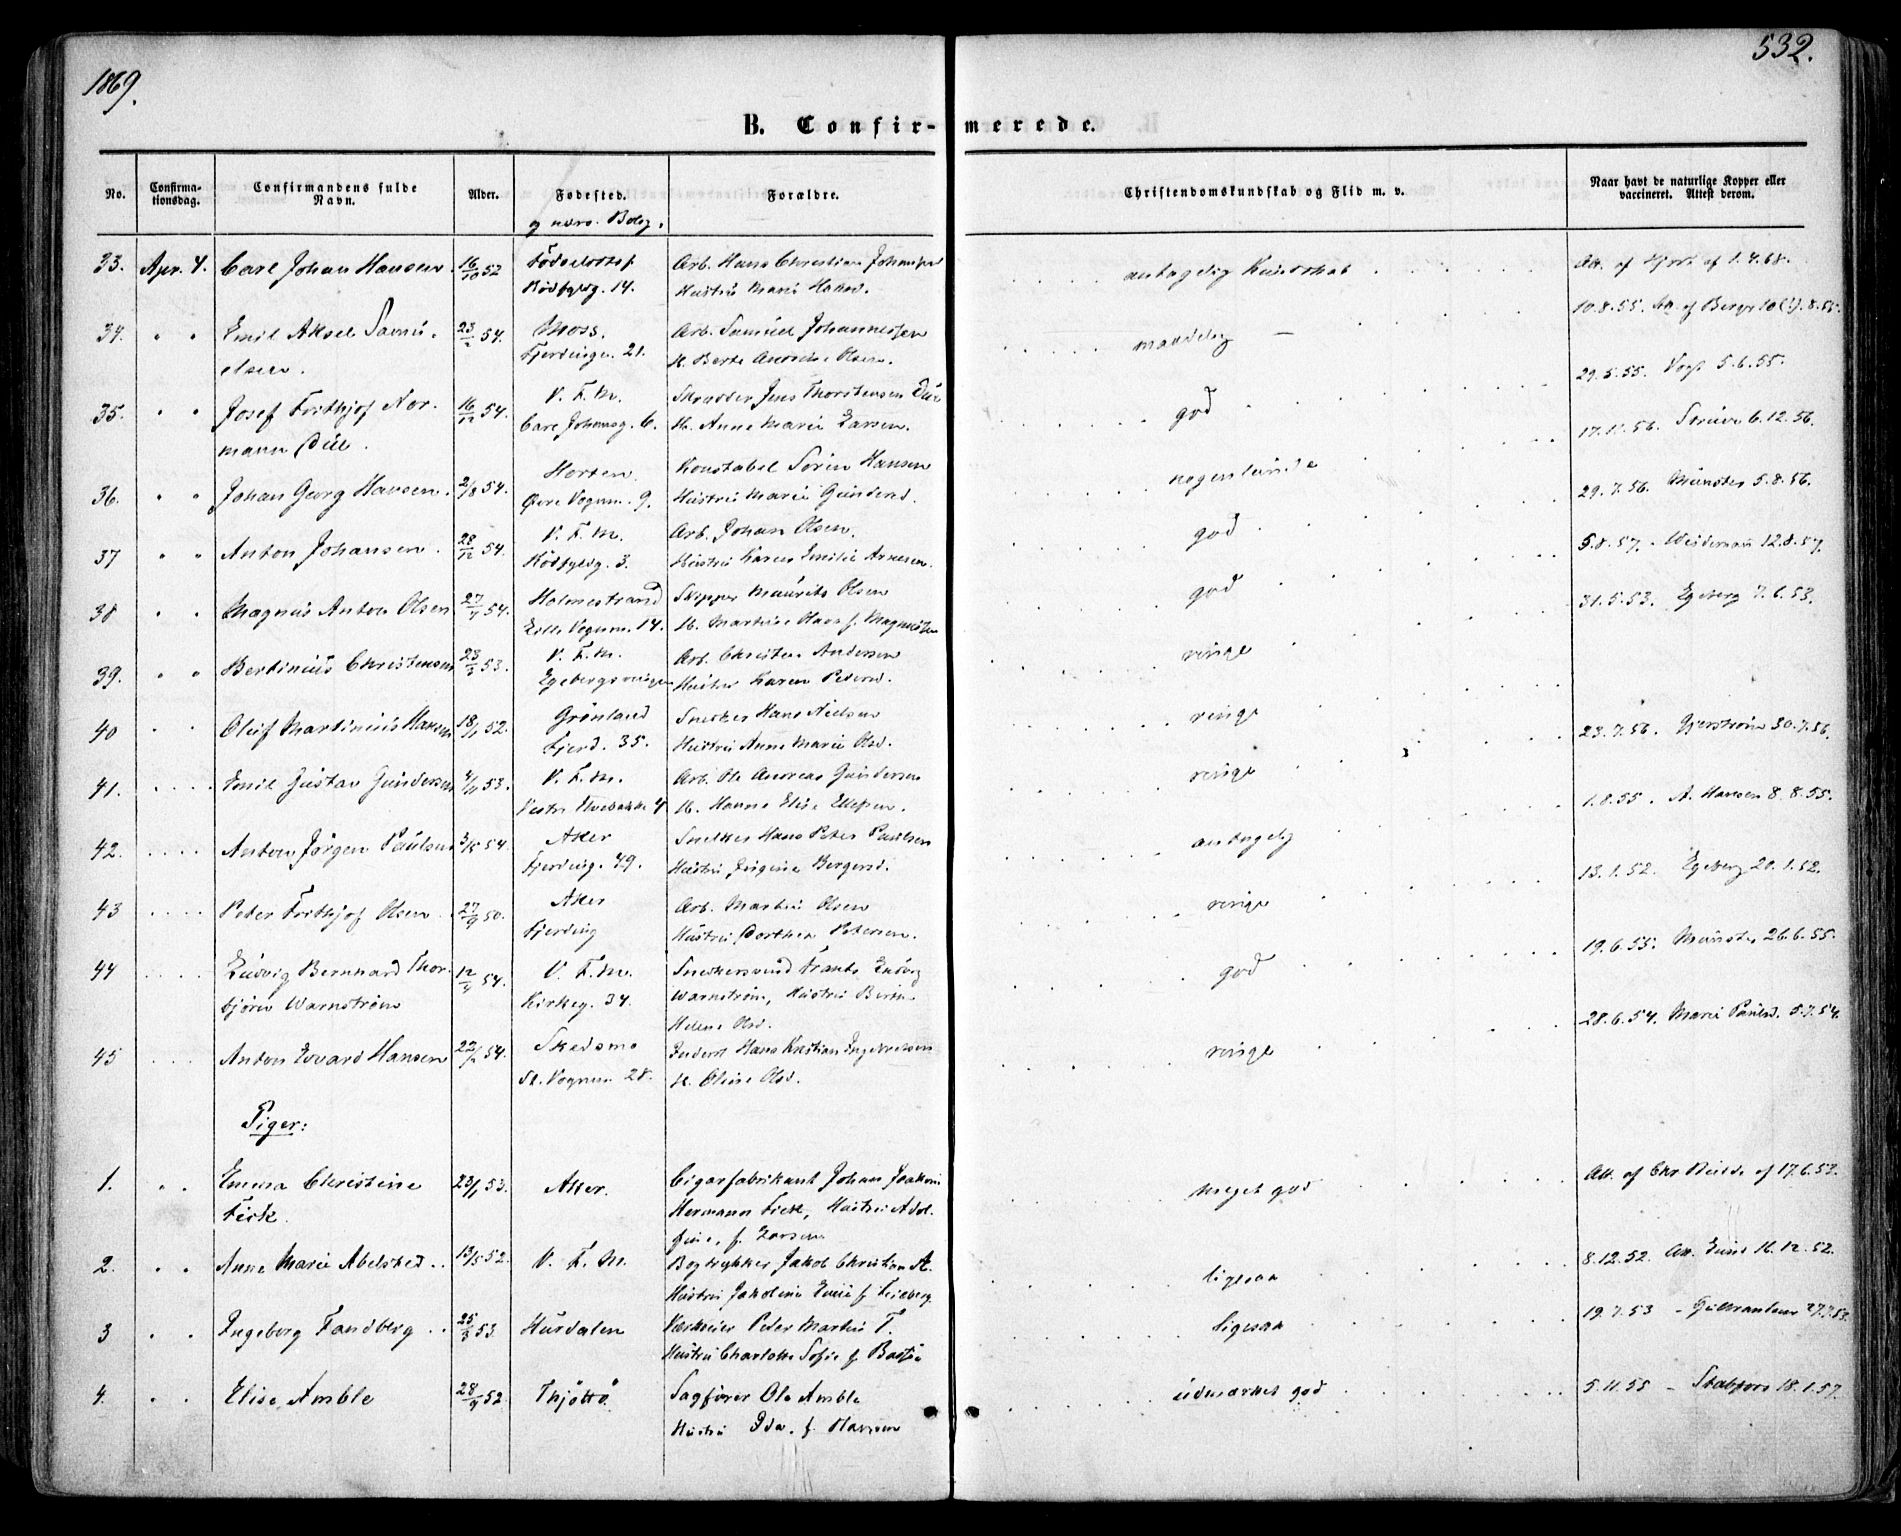 1869.
532.
B. Confir-merede.
No.
Confirma-tionsdag.
Confirmandens fulde Navn.
Alder.
Fødested.
og nærv. Bolig.
Forældre.
Christendomskundskab og Flid m. v.
Naar havt de naturlige Kopper eller vaccineret. Attest derom.
33. Apr. 4. Carl Johan Hansen. 16/10 52 Fødselsstif Arb. Hans Christian antagelig Kundskab Att. af Hjort af 1.4.68.
Rødfyldg. 14. Hustru Marie
34. " " Emil Aksel Samu- 23/2 54. Moss. Arb. Samuel Johannessen maadelig — 10.8.55. Att. af Berger 10(!).8.55.
elsen. Fjerdingn. 21. H. Berte Olsen.
35. " " Josef Frithjof Nor- 16/12 54. V. F. M. Skrædder Jens Thorstensen Due god 29.5.55. Vogt 5.6.55.
mann Due. Carl Johansg. 6. H. Anne Marie Larsen.
36. " " Johan Georg Hansen. 2/8 54. Horten. Konstabel Sören Hansen nogenlunde 17.11.56. Struve 6.12.56.
Øvre Vognm. 9. Hustru Marie Gundersd.
37 " " Anton Johansen. 28/12 54. V. F. M. Arb. Johan Olsen. god 29.7.56. Münster 5.8.56.
Rödfyldg. 3. Hustru Karen Emilie Arnesen.
38 " " Magnus Anton Olsen 27/4 54. Holmestrand Skipper Mauritz Olsen god 5.8.57. - 12.8.57.
Lille Vognm. 14. H. Martine f. Magnussen
39. " " Bertinius Christensen 23/3 53. V. F. M. Arb. Christen Andersen ringe 31.5.53. Egeberg 7.6.53.
Egebergsveien Hustru Karen Petersd.
40 " " Oluf Martinius Hansen 18/11 52. Grönland Snedker Hans Nielsen ringe
Fjerd. 35. Hustru Anne Marie Olsd.
41. Emil Gustav Gundersen 4/11 53. V. F. M. Arb. Ole Andreas Gundersen ringe 23.7.56. Gjerström 30.7.56.
Vestre Elvebakke 4 H. Hanna Elise Ellefsen.
42. Anton Jörgen Paulsen 3/5 54. Aker Snedker Hans Peter Paulsen antagelig 1.8.55. A. Hansen 8.8.55.
Fjerding. 49. Hustru Jörgine Bergersd.
43 Peter Frithjof Olsen 27/9 50. Aker Arb. Martin Olsen ringe 13.1.52. Egeberg 20.1.52.
Fjerding Hustru Dorthea Petersen.
44 Ludvig Bernhard Thor- 12/4 54. V. F. M. Snedkersvend Frants Ludvig god 19.6.55. Münster 26.6.55.
björn Warnström Kirkeg. 34. Warnström, Hustru
Helene Olsd.
45 Anton Edvard Hansen 22/2 54. Skedsmo Inderst Hans Kristian Ingebretsen ringe 28.6.54. Marie Paulsd. 5.7.54.
St. Vognm. 28. H. Oline Olsd.
Piger:
1. " " Emma Christine 23/1 53. Aker. Cigarfabrikant Johan Joakim meget god Att. af Chr. af 17.6.53.
Fick. Hermann Fick, Hustru Adol-
fine, f. Larsen
2. " " Anne Marie Abelsted 13/5 52. V. F. M. Bogtrykker Jakob Christian A. ligesaa 8.12.52. Att. 16.12.52.
Hustru Jakobine f.
3 " " Ingeborg Fandberg 25/3 53. Hurdalen Værkeier Peter Martin F. ligesaa 19.7.53 - 27.7.53.
Hustru Charlotte Sofie f.
4. " " Elise Amble 28/9 52. Thjöttö Sagförer Ole Amble udmærket god 5.11.55 - 18.1.57.
Hustru Ida. f. Hansen